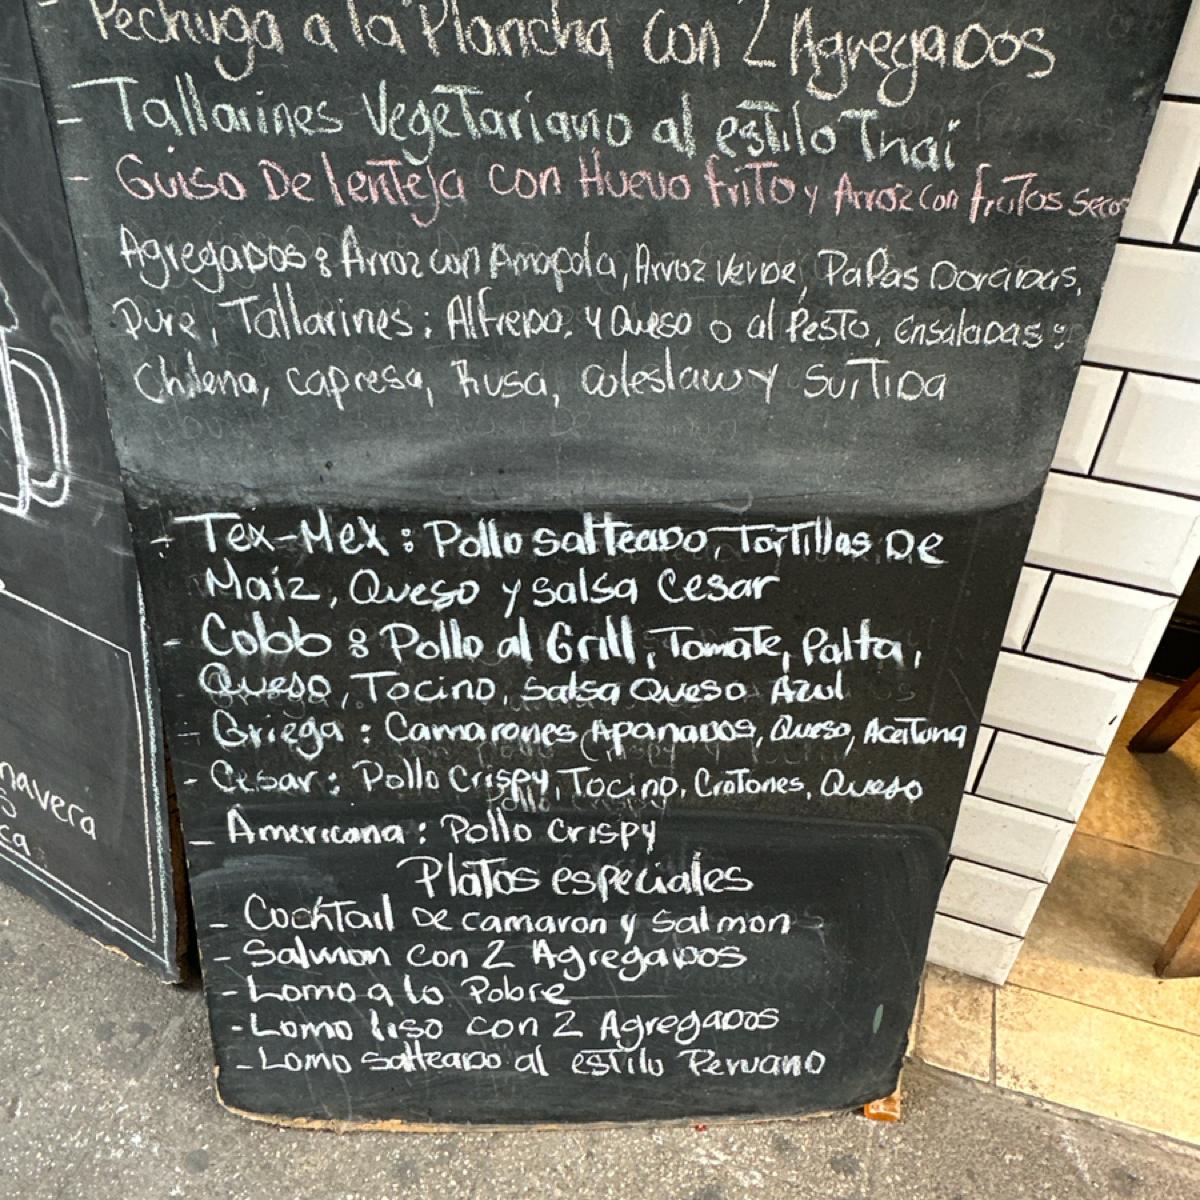 Pechuga a la Plancha con 2 Agregados
- Tallarines Vegetariano al estilo Thai
- Guiso De lenteja con Huevo frito y Arroz con frutos secos
Agregados: Arroz con Amapola, Arroz Verde, Papas Doradas,
Pure, Tallarines: Alfredo, y Queso o al Pesto, Ensaladas:
Chilena, capresa, Rusa, coleslaw y SurTida
- Tex-Mex: Pollo salteado, Tortillas De
Maiz, Queso y salsa Cesar
- Cobb: Pollo al Grill, Tomate, Palta,
Queso, Tocino, salsa Queso Azul
- Griega: Camarones Apanados, Queso, Aceituna
- Cesar: Pollo Crispy, Tocino, Crotones, Queso
- Americana: Pollo Crispy
Platos especiales
- Cocktail De camaron y Salmon
- Salmon con 2 Agregados
- Lomo a lo Pobre
- Lomo liso con 2 Agregados
- Lomo salteado al estilo Peruano